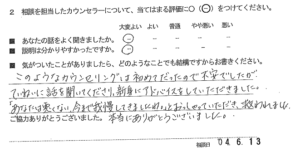 2 相談を担当したカウンセラーについて、当てはまる評価に○(⊖)をつけてください。
大変よい よい 普通 やや悪い 悪い
■ あなたの話をよく聞きましたか。
■ 説明は分かりやすかったですか。
■ 気がついたことがありましたら、どのようなことでも結構ですからお書きください。
このようなカウンセリングは初めてだったので不安でしたが
ていねいに話を聞いてくださり、親身にアドバイスをしていただきました。
「あなたは悪くない、今まで我慢してきましたね」とおっしゃていただき、救われました。
ご協力ありがとうございました。 本当にありがとうございました。
04.6.13